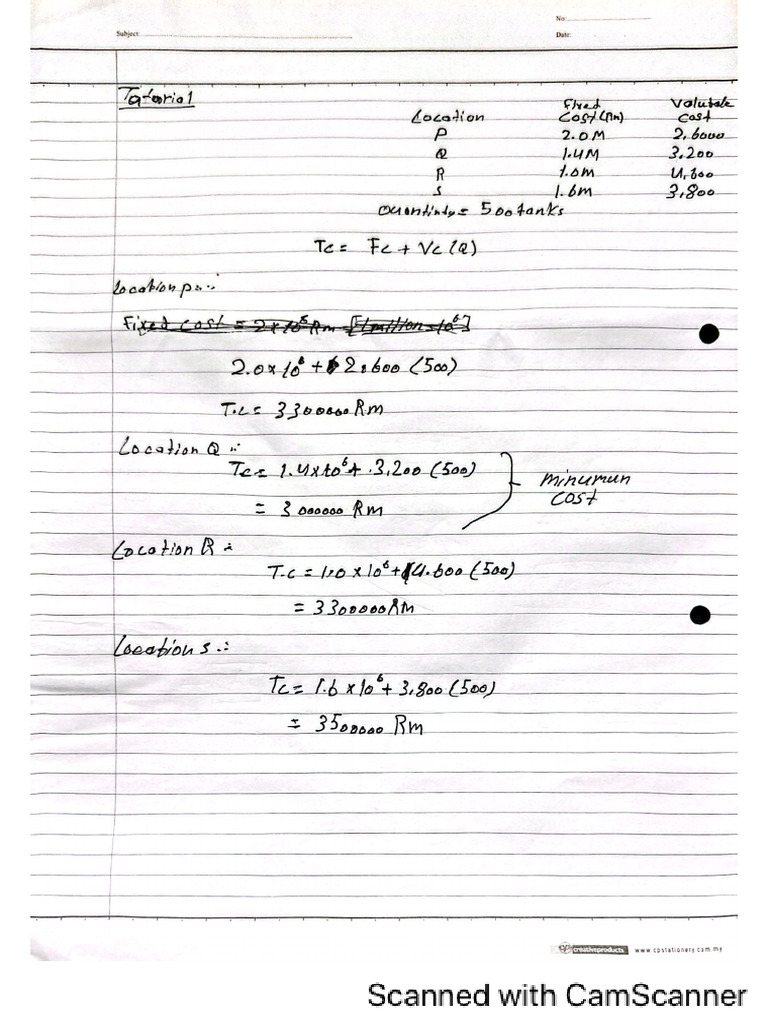 No:
Subject:
Date:
Tutorial
Location Fixed Cost(Rm) Valubale cost
P 2.0M 2,6000
Q 1.4M 3.200
R 1.0M 4,600
S 1.6m 3,800
Quantinty = 500 tanks
Tc = Fc + Vc (Q)
Location p :-
Fixed cost = 2×10⁶ Rm [1 million = 10⁶]
2.0×10⁶ + 2.600 (500)
T.c = 3300000 Rm
Location Q :-
Tc = 1.4×10⁶ + 3,200 (500)
= 3000000 Rm
minumun cost
Location R :-
T.c = 1.0 ×10⁶ + 4.600 (500)
= 3300000Rm
Location s :-
Tc = 1.6 ×10⁶ + 3,800 (500)
= 3500000 Rm
creativeproducts www.cpstationery.com.my
Scanned with CamScanner